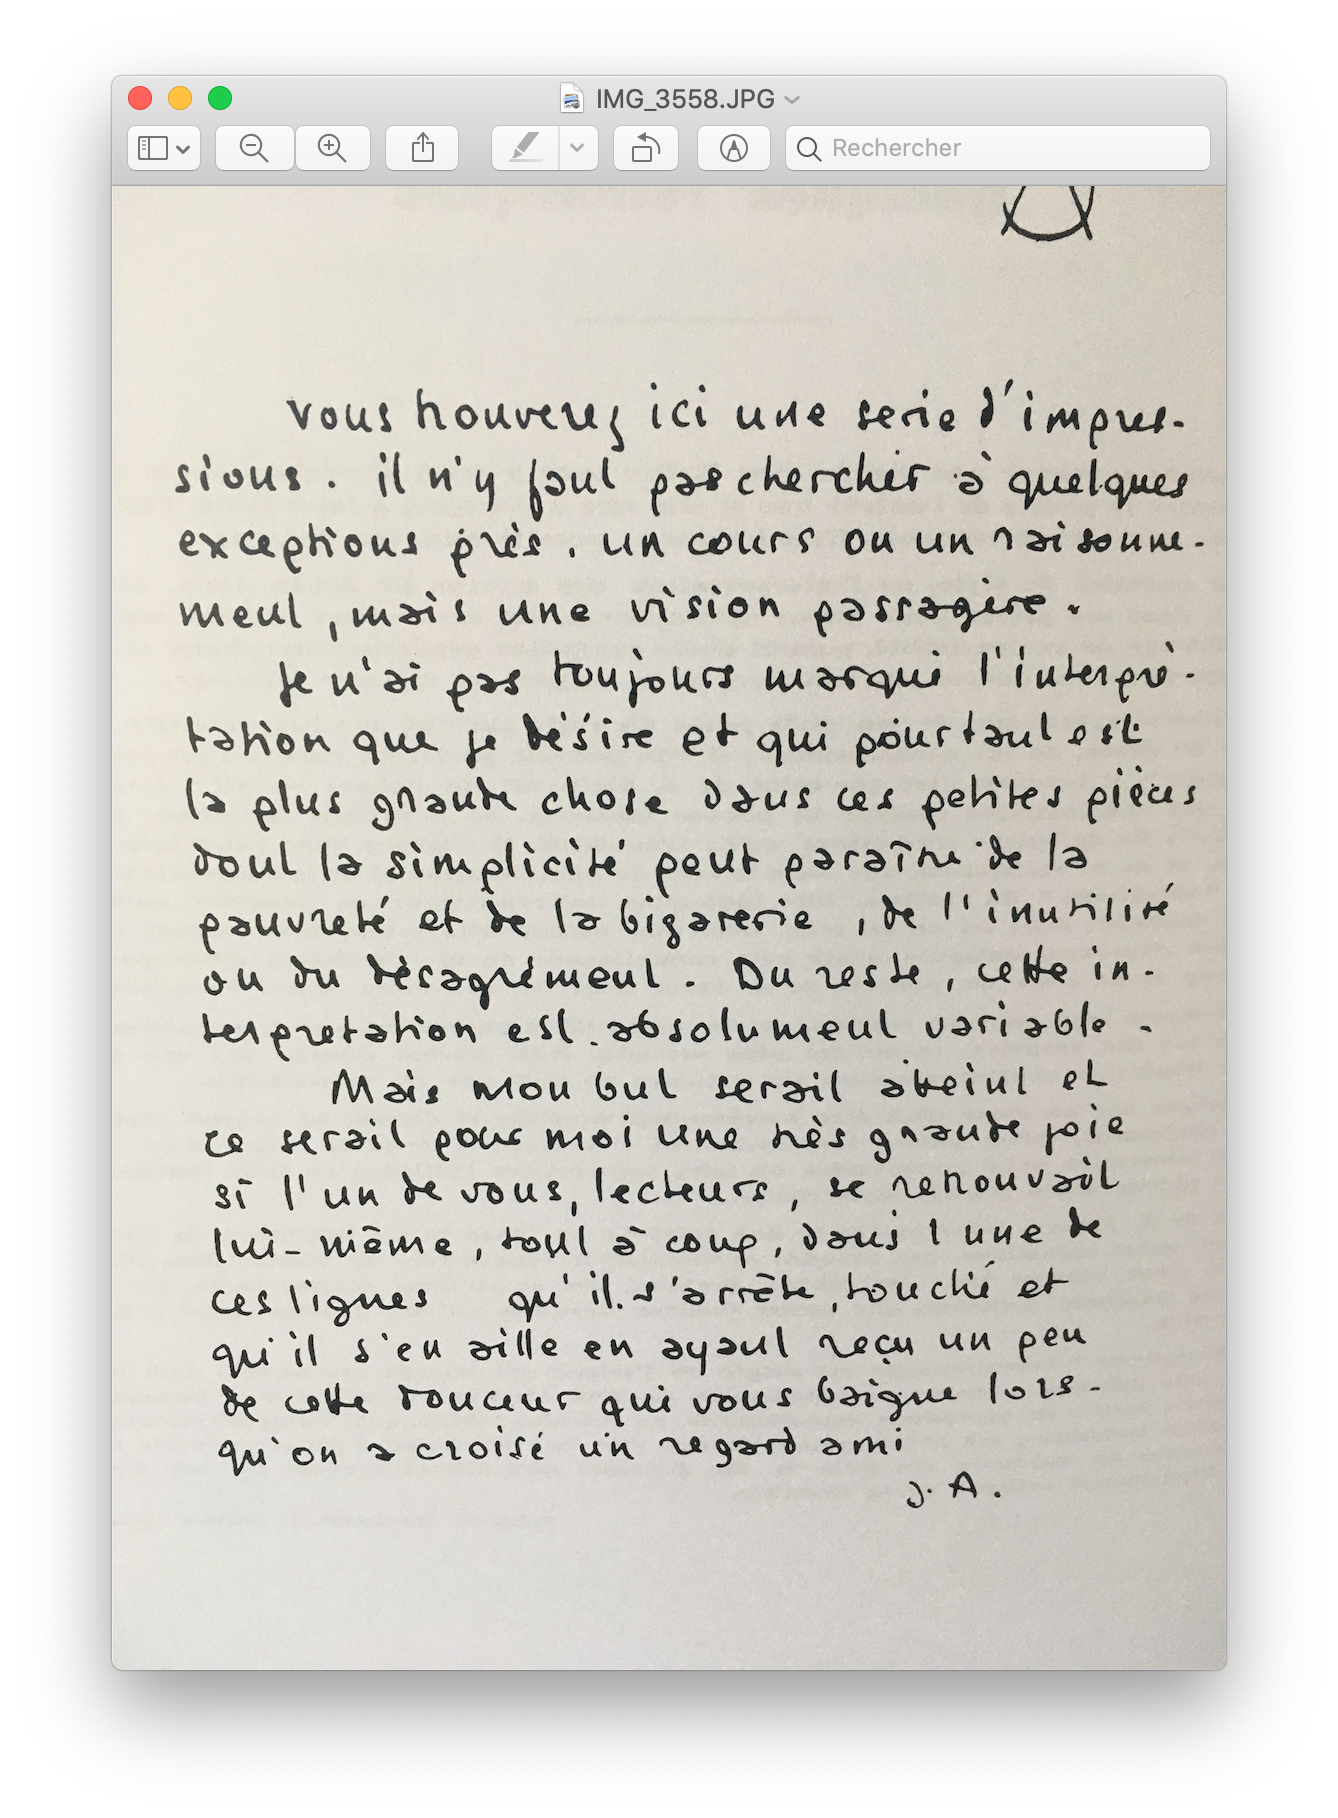 IMG_3558.JPG
Rechercher
Vous trouverez ici une serie d'impres-
sions. il n'y faut pas chercher à quelques
exceptions près, un cours ou un raisonne-
ment, mais une vision passagère.
Je n'ai pas toujours marqué l'interpré-
tation que je désire et qui pourtant est
la plus grande chose dans ces petites pièces
dont la simplicité peut paraître de la
pauvreté et de la bizarerie, de l'inutilité
ou du désagrément. Du reste, cette in-
terpretation est absolument variable.
Mais mon but serait atteint et
ce serait pour moi une très grande joie
si l'un de vous, lecteurs, se retrouvait
lui-même, tout à coup, dans l'une de
ces lignes qu'il s'arrête, touché et
qu'il s'en aille en ayant reçu un peu
de cette douceur qui vous baigne lors-
qu'on a croisé un regard ami
J. A.